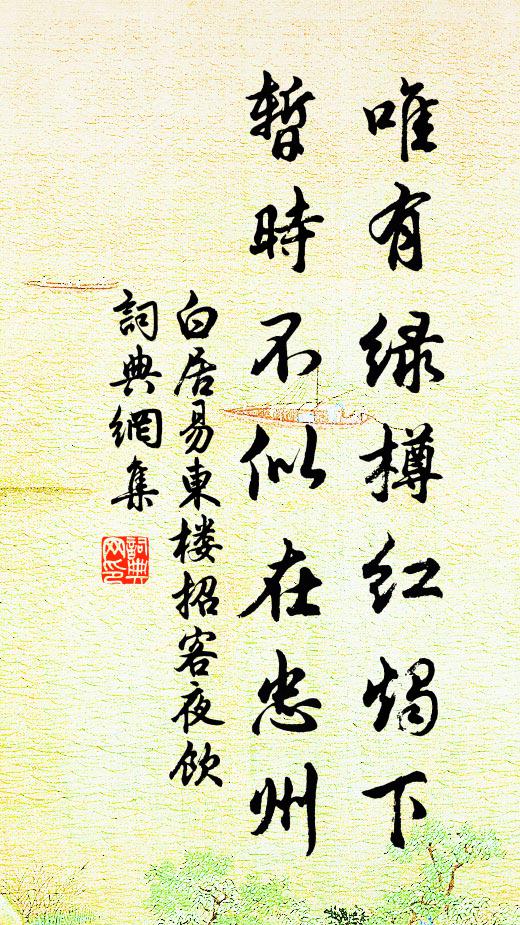 唯有绿樽红烛下
暫時不似在忠州
白居易東楼招客夜飲
詞典網集
詞典网印